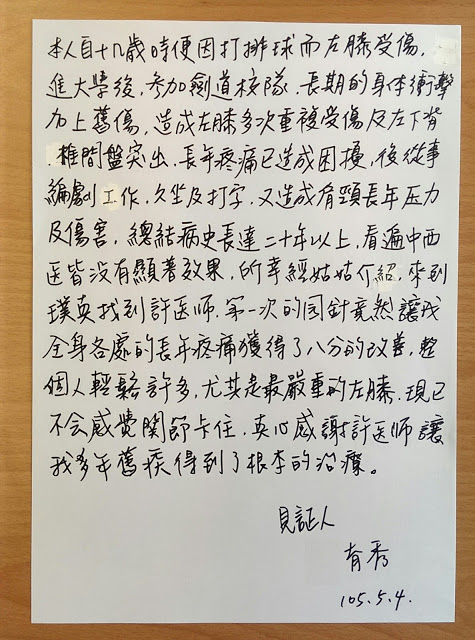 本人自十几歲時便因打排球而左膝受傷，
進大學後，參加劍道校隊，長期的身体衝擊
加上舊傷，造成左膝多次重複受傷及左下背
椎間盤突出，長年疼痛已造成困擾，後從事
編劇工作，久坐及打字，又造成肩頸長年压力
及傷害，總結病史長達二十年以上，看遍中西
医皆没有顯著效果，所幸經姑姑介紹，來到
璞真找到許医师，第一次的同針竟然讓我
全身各處的長年疼痛獲得了八分的改善，整
個人輕鬆許多，尤其是最嚴重的左膝，現已
不会感覺関節卡住，真心感謝許医师讓
我多年舊疾得到了根本的治療。
見証人
育秀
105.5.4.